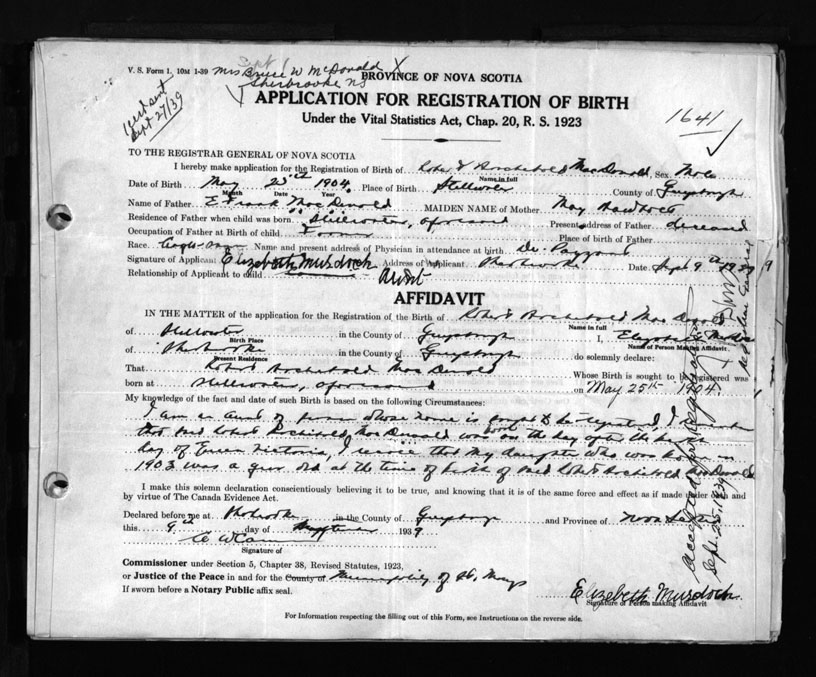 V. S. Form 1. 10M 1-39 Mrs Bruce W McDonald
Sherbrooke NS
PROVINCE OF NOVA SCOTIA
APPLICATION FOR REGISTRATION OF BIRTH
Under the Vital Statistics Act, Chap. 20, R. S. 1923
Cert sent
Sept 27/39
1641
TO THE REGISTRAR GENERAL OF NOVA SCOTIA
I hereby make application for the Registration of Birth of Robert Archibald MacDonald Sex Male
Name in full
Date of Birth May 25th 1904. Place of Birth Stillwater County of Guysborough
Month Date Year
Name of Father E. Frank MacDonald MAIDEN NAME of Mother May
Residence of Father when child was born Stillwater, aforesaid Present address of Father deceased
Occupation of Father at Birth of child Farmer Place of birth of Father
Race Name and present address of Physician in attendance at birth Dr.
Signature of Applicant Elizabeth Murdock Address of Applicant Sherbrooke Date Sept 9th 1939
Relationship of Applicant to child Aunt
AFFIDAVIT
IN THE MATTER of the application for the Registration of the Birth of Robert Archibald MacDonald
Name in full
of Stillwater in the County of Guysborough I, Elizabeth
Birth Place Name of Person Making Affidavit
of Sherbrooke in the County of Guysborough do solemnly declare:
Present Residence
That Robert Archibald MacDonald Whose Birth is sought to be registered was
born at Stillwater, aforesaid on May 25th 1904.
My knowledge of the fact and date of such Birth is based on the following Circumstances:
I am an aunt of person whose name is sought to be registered, I remember
that said Robert Archibald MacDonald was born on the day after the
day of Queen Victoria, I that my daughter who was born in
1903 was a year old at the time of birth of said Robert Archibald MacDonald
I make this solemn declaration conscientiously believing it to be true, and knowing that it is of the same force and effect as if made under oath and
by virtue of The Canada Evidence Act.
Declared before me at Sherbrooke in the County of Guysborough and Province of Nova Scotia
this 9th day of September 1939
Signature of
Commissioner under Section 5, Chapter 38, Revised Statutes, 1923,
or Justice of the Peace in and for the County of Municipality of St. Marys
If sworn before a Notary Public affix seal.
Elizabeth Murdock
Signature of Person making Affidavit
For Information respecting the filling out of this Form, see Instructions on the reverse side.
Accepted for registration
Sept. 25, 1939